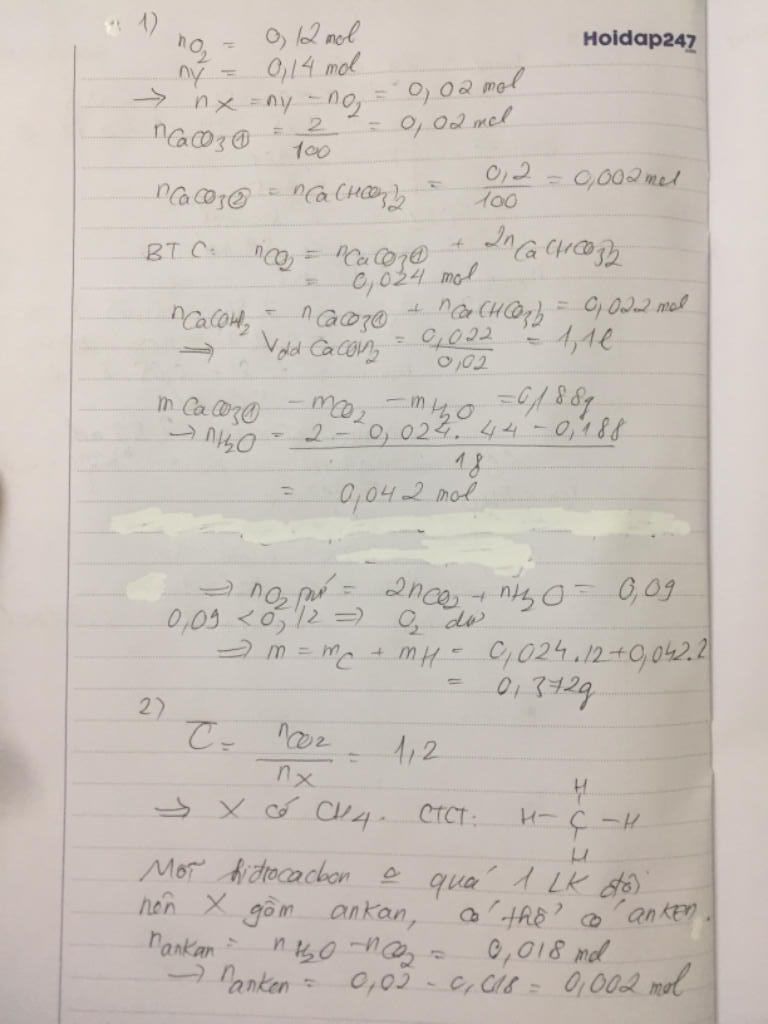 1)
Hoidap247
nO2 = 0,12 mol
nY = 0,14 mol
→ nX = nY - nO2 = 0,02 mol
nCaCO3① = 2/100 = 0,02 mol
nCaCO3② = nCa(HCO3)2 = 0,2/100 = 0,002 mol
BTC: nCO2 = nCaCO3① + 2nCa(HCO3)2
= 0,024 mol
nCa(OH)2 = nCaCO3① + nCa(HCO3)2 = 0,022 mol
⇒ Vdd Ca(OH)2 = 0,022/0,02 = 1,1l
mCaCO3① - mCO2 - mH2O = 0,188g
→ nH2O = (2 - 0,024. 44 - 0,188)/18
= 0,042 mol
⇒ nO2 pứ = 2nCO2 + nH2O = 0,09
0,09 < 0,12 ⇒ O2 dư
⇒ m = mC + mH = 0,024.12+0,042.2
= 0,372g
2)
C̅ = nCO2/nX = 1,2
⇒ X có CH4. CTCT: H-C-H
H
H
Mỗi hiđrocacbon quá 1 LK đôi
nên X gồm ankan, có thể có anken.
nankan = nH2O - nCO2 = 0,018 mol
→ nanken = 0,02 - 0,018 = 0,002 mol